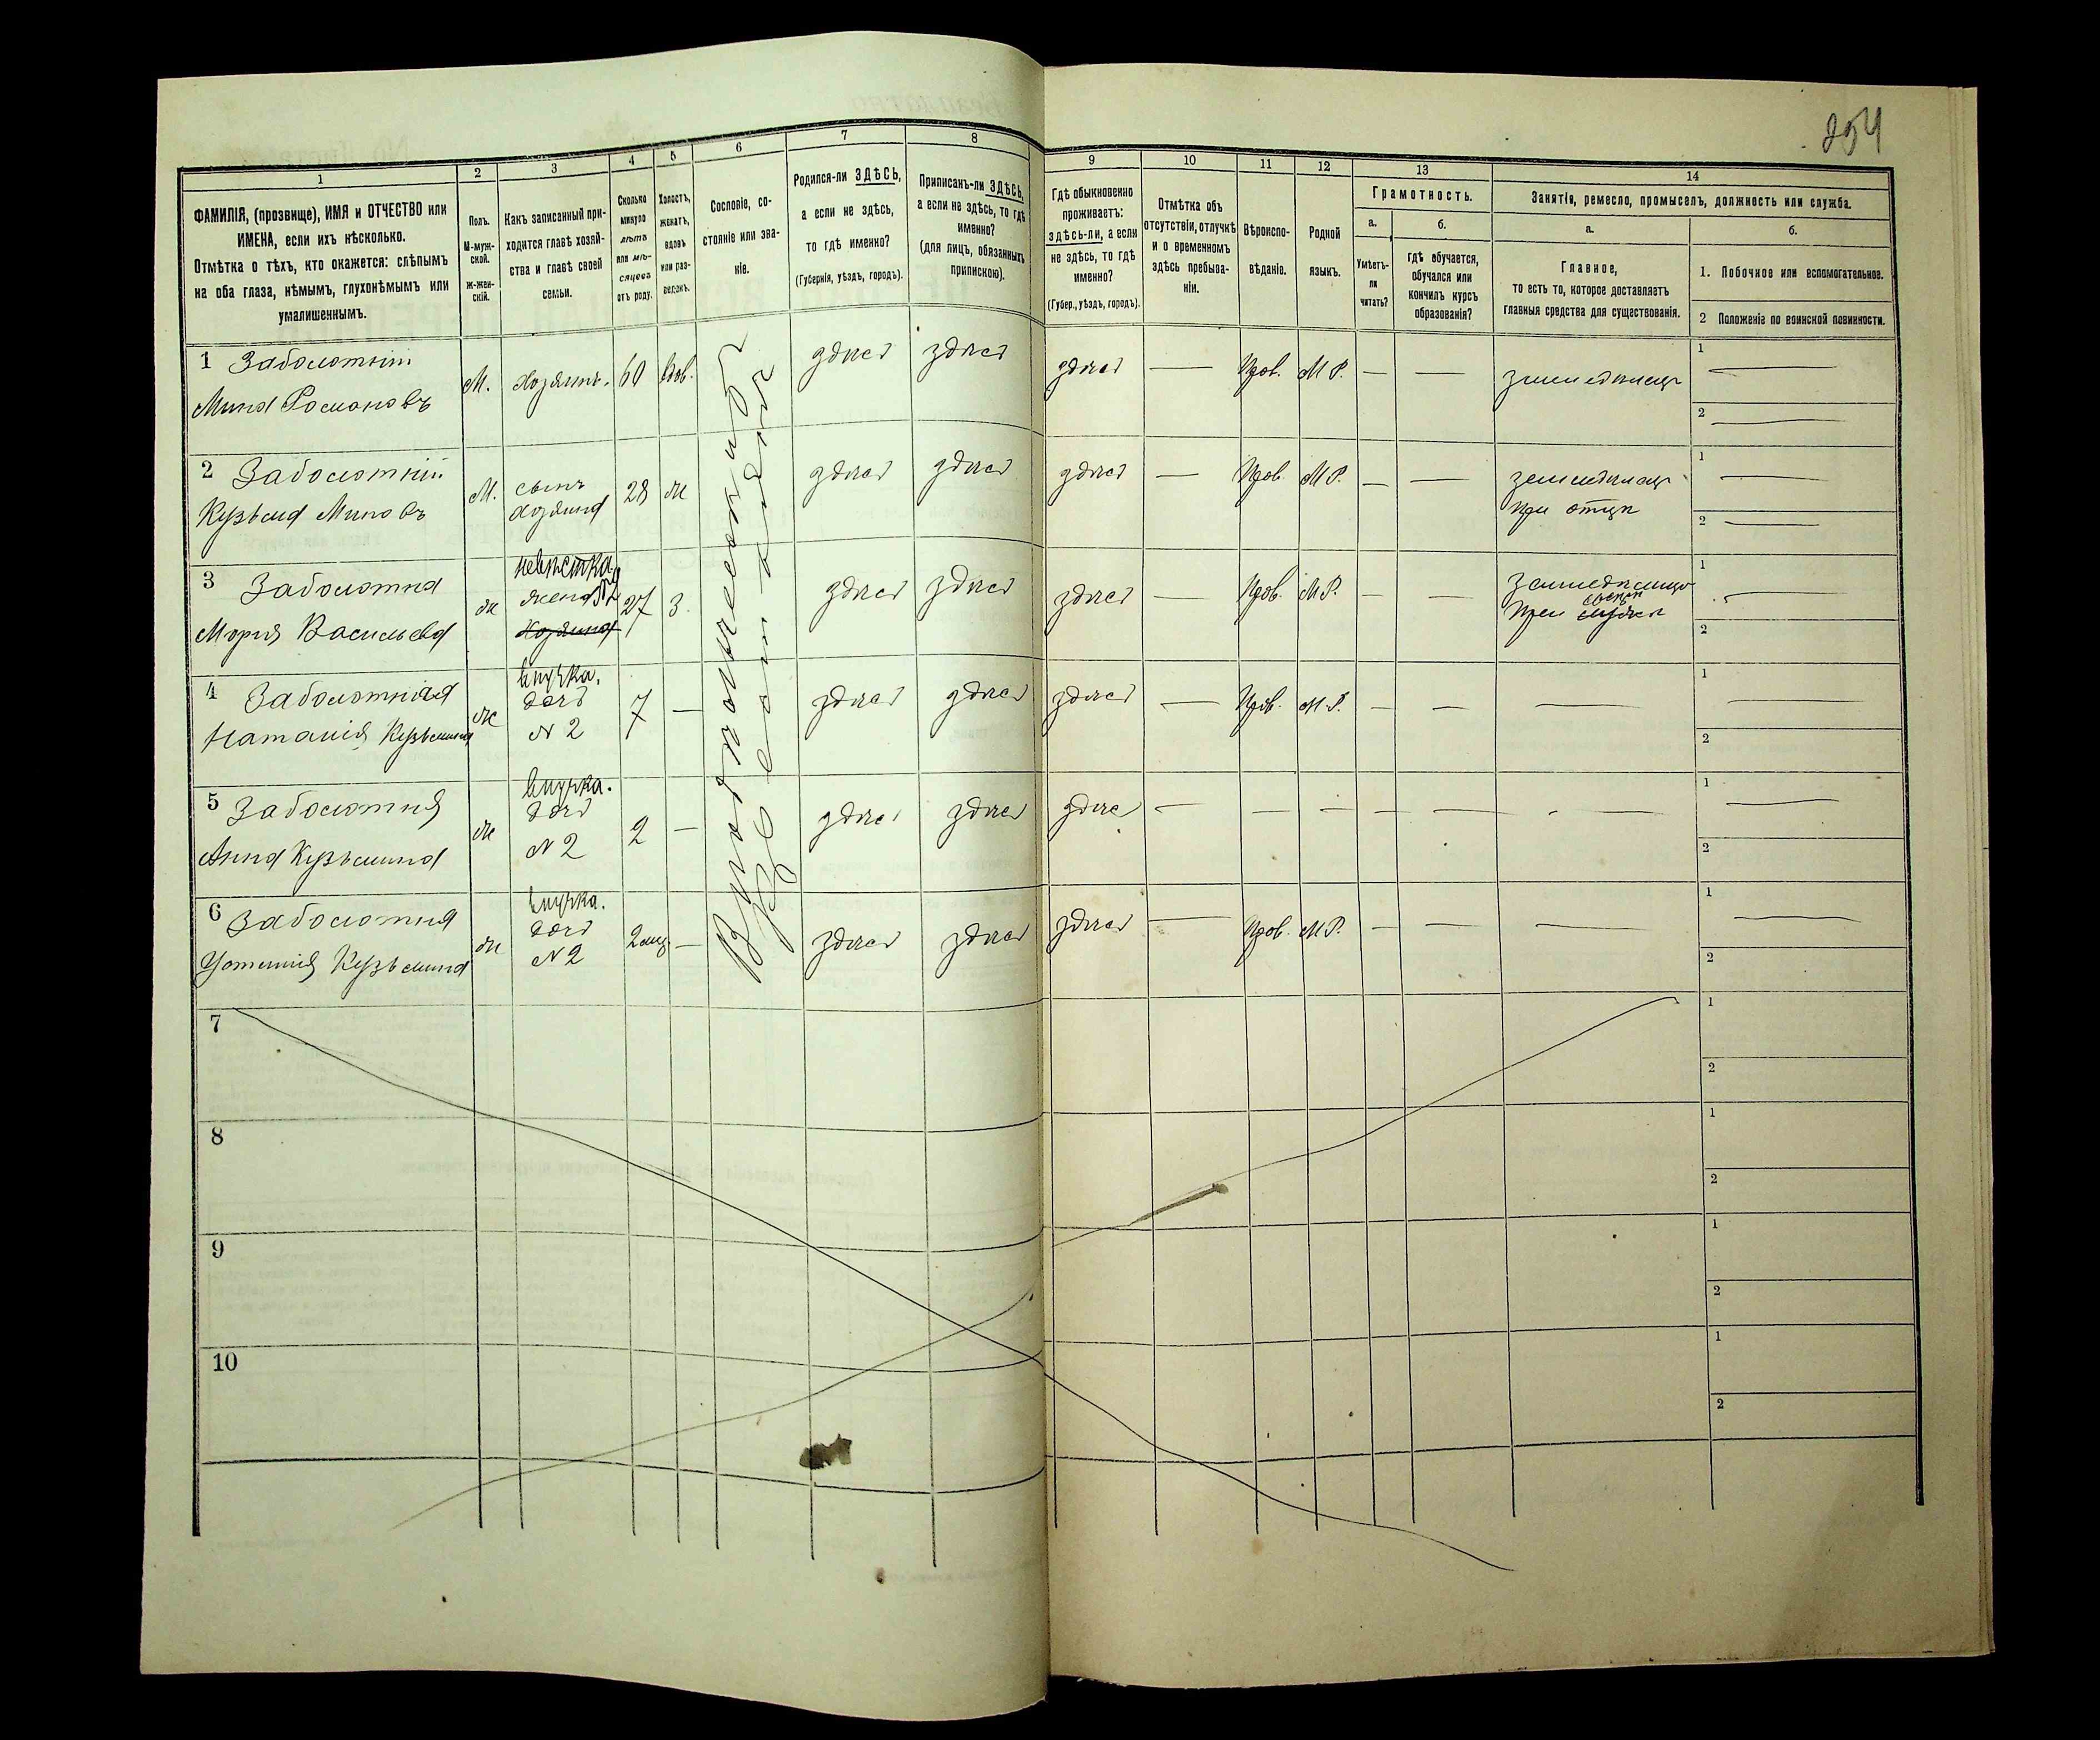 254
1 2 3 4 5 6 7 8 9 10 11 12 13 14
ФАМИЛІЯ, (прозвище), ИМЯ и ОТЧЕСТВО или
ИМЕНА, если ихъ нѣсколько.
Отмѣтка о тѣхъ, кто окажется: слѣпымъ
на оба глаза, нѣмымъ, глухонѣмымъ или
умалишеннымъ.
Полъ.
М-муж-
ской.
Ж-жен-
скій.
Какъ записанный при-
ходится главѣ хозяй-
ства и главѣ своей
семьи.
Сколько
минуло
лѣтъ
или мѣ-
сяцевъ
отъ роду.
Холостъ,
женатъ,
вдовъ
или раз-
веденъ.
Сословіе, со-
стояніе или зва-
ніе.
Родился-ли ЗДѢСЬ,
а если не здѣсь,
то гдѣ именно?
(Губернія, уѣздъ, городъ).
Приписанъ-ли ЗДѢСЬ,
а если не здѣсь, то гдѣ
именно?
(для лицъ, обязанныхъ
припискою).
Гдѣ обыкновенно
проживаетъ:
здѣсь-ли, а если
не здѣсь, то гдѣ
именно?
(Губер., уѣздъ, городъ).
Отмѣтка объ
отсутствіи, отлучкѣ
и о временномъ
здѣсь пребыва-
ніи.
Вѣроиспо-
вѣданіе.
Родной
языкъ.
Грамотность.
а.
Умѣетъ-
ли
читать?
б.
гдѣ обучается,
обучался или
кончилъ курсъ
образованія?
Занятія, ремесло, промыселъ, должность или служба.
а.
Главное,
то есть то, которое доставляетъ
главныя средства для существованія.
б.
1. Побочное или вспомогательное.
2 Положеніе по воинской повинности.
1 Заболотній
Мина Романовъ
М. хозяинъ. 60 вдов. здѣсь здѣсь здѣсь — Прав. М.Р. — — земледѣлецъ 1 — 2 —
2 Заболотній
Кузьма Миновъ
М. сынъ
хозяина
28 ж здѣсь здѣсь здѣсь — Прав. М.Р. — — земледѣлецъ
при отцѣ
1 — 2 —
3 Заболотня
Марія Васильева
ж невѣстка
жена №2
хозяина
27 з. здѣсь здѣсь здѣсь — Прав. М.Р. — —
при
1 — 2
4 Заболотняя
Наталія Кузьмина
ж внучка.
дочь
№ 2
7 — здѣсь здѣсь здѣсь — Прав. М.Р. — — — 1 — 2
5 Заболотня
Анна Кузьмина
ж внучка.
дочь
№ 2
2 — здѣсь здѣсь здѣсь — — — — — 1 — 2
6 Заболотня
Кузьмина
ж внучка.
дочь
№ 2
2 мѣц — здѣсь здѣсь здѣсь — Прав. М.Р. — — — 1 — 2
7 1 2
8 1 2
9 1 2
10 1 2